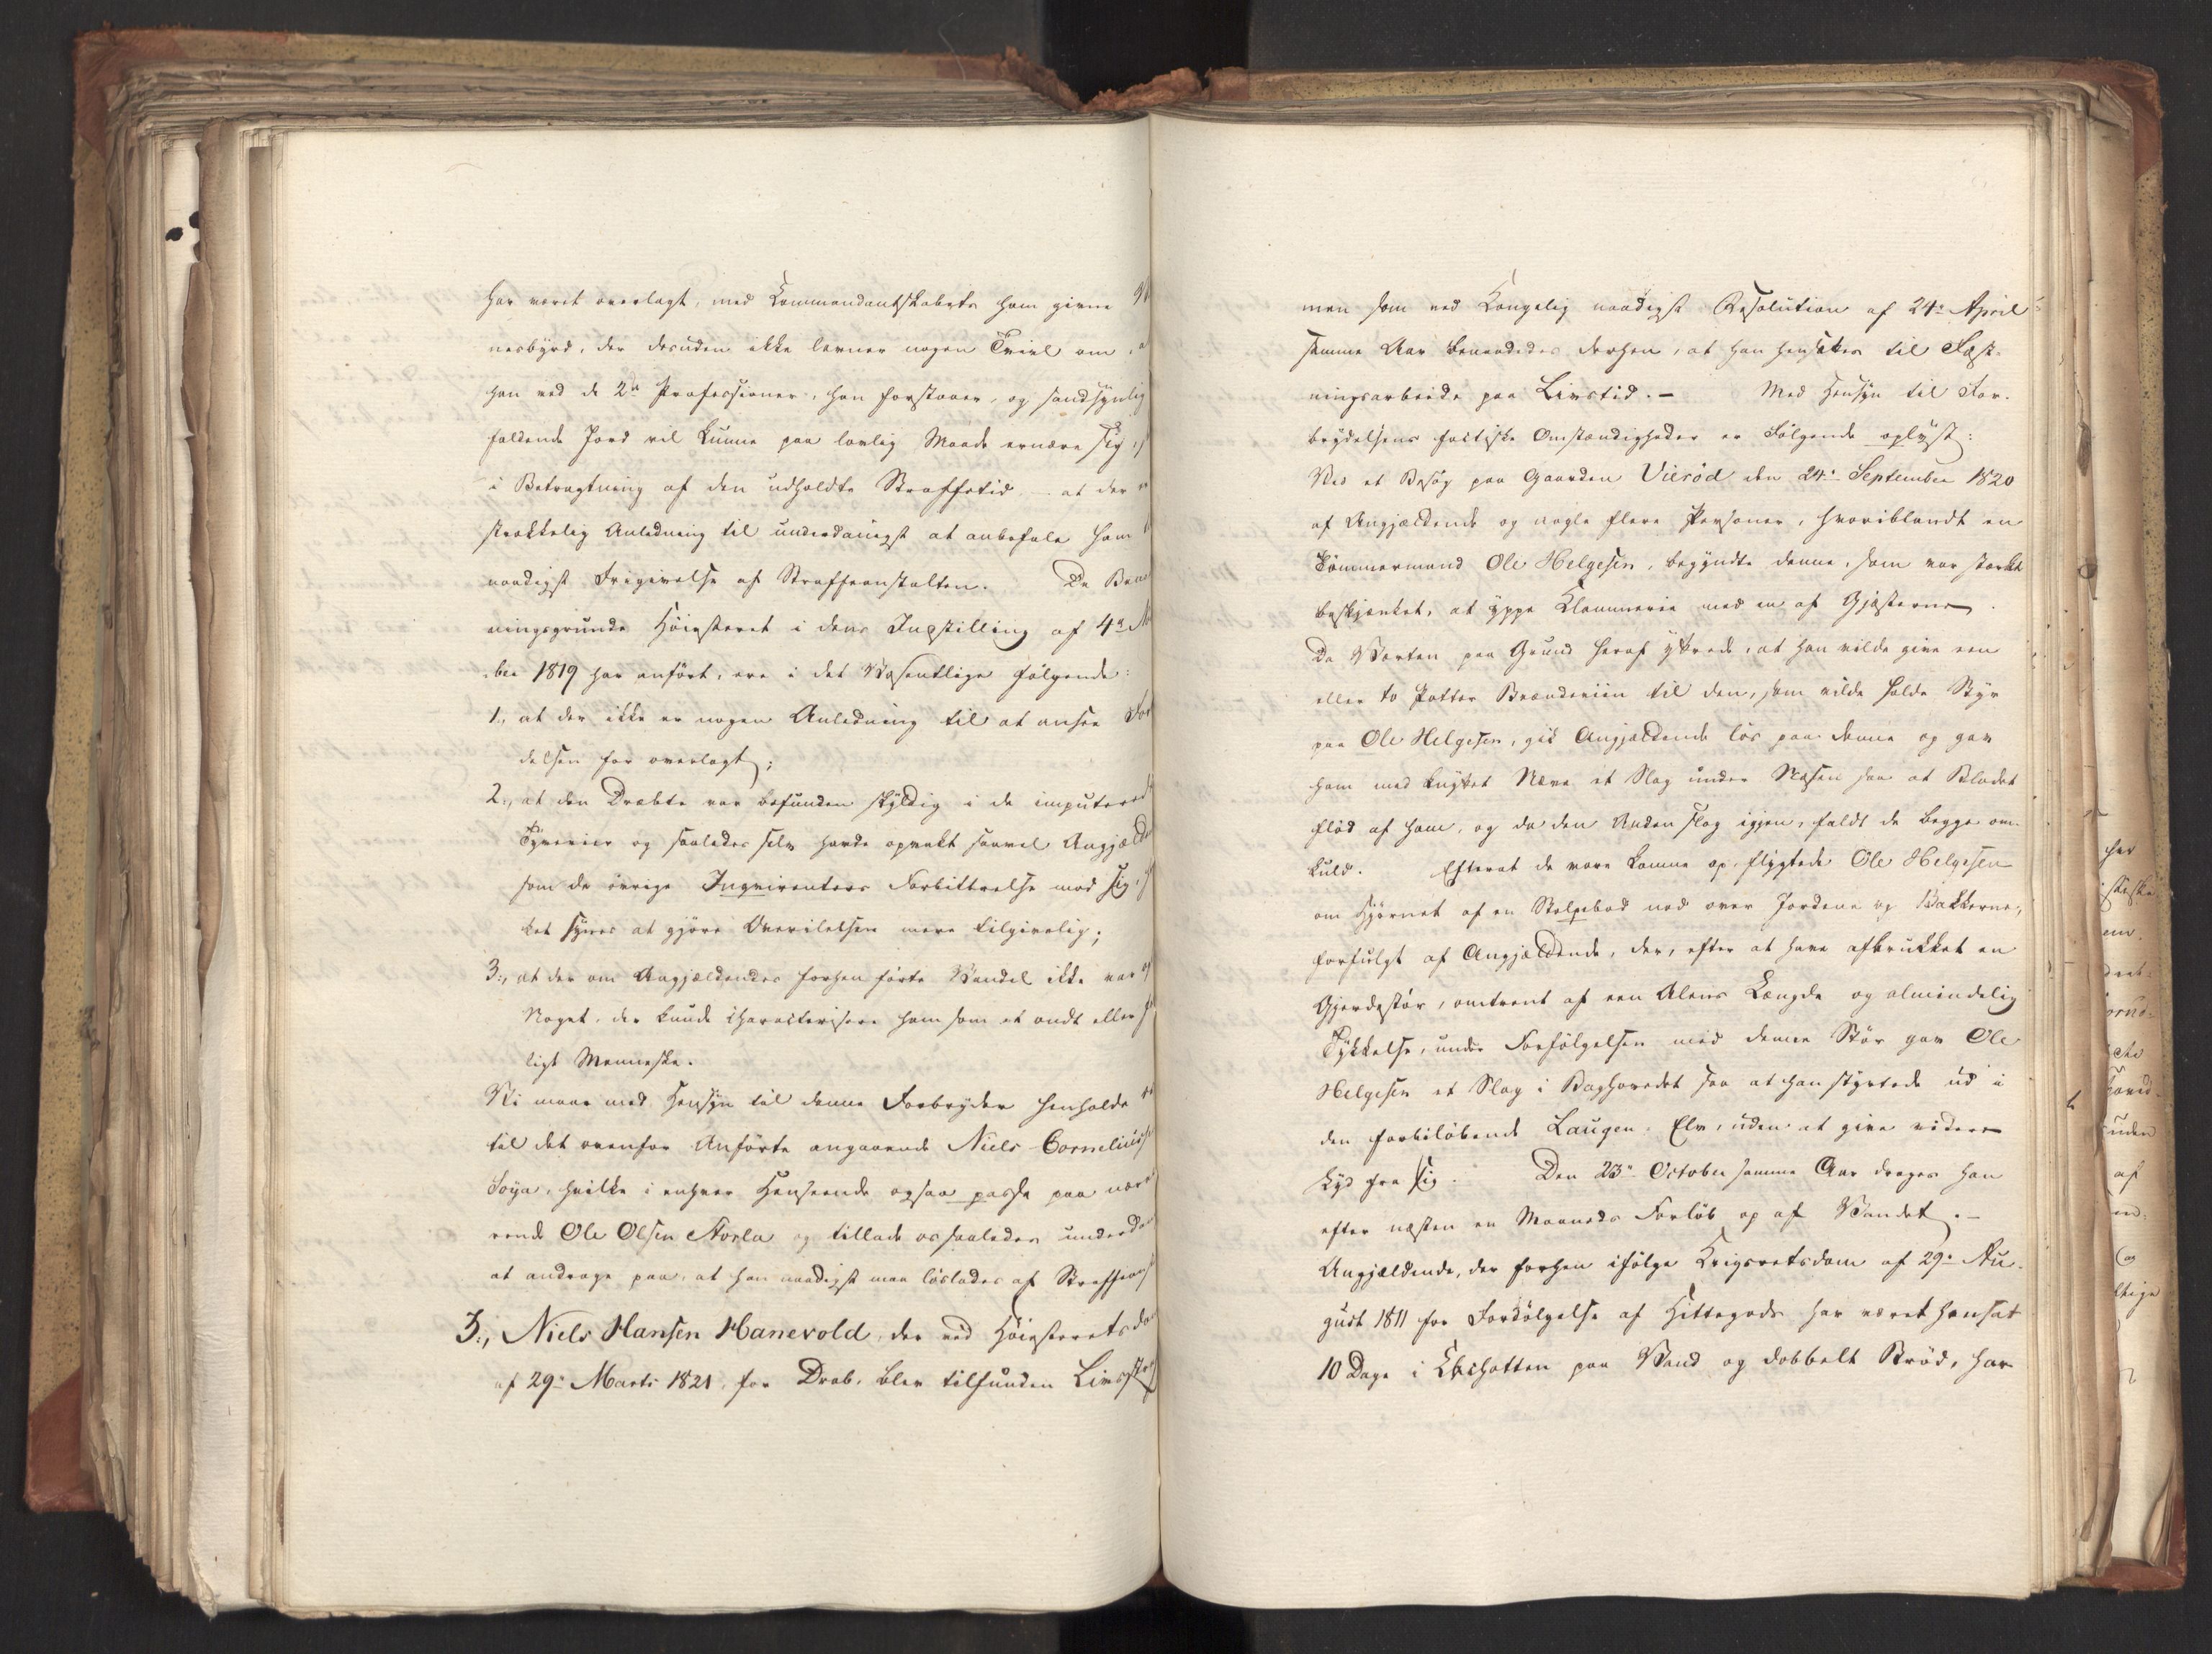 har været overlagt, med Kommandantskabets ham givne
nesbyrd, der desuden ikke levner nogen Tvivl om,
han ved de 2de Professioner, han forstaaer, og sandsynlig
faldende Jord vil kunne paa lovlig Maade ernære sig,
i Betragtning af den udholdte Straffetid – at der
strækkelig Anledning til underdanigst at anbefale ham
naadigst Frigivelse af Straffeanstalten. De Ben
ningsgrunde Høiesteret i dens Indstilling af 4de
ber 1819 har anført, ere i det Væsentlige følgende:
1., at der ikke er nogen Anledning til at ansee For
delsen for overlagt;
2., at den Dræbte var befunden skyldig i de imputerede
Tyverier og saaledes selv havde opvakt saavel Angjælde
som de øvrige Inqvirenters Forbittrelse mod sig,
ket synes at gjøre Overilelsen mere tilgivelig;
3., at der om Angjældendes forhen førte Vandel ikke var
Noget, der kunde characterisere ham som et ondt eller
ligt Menneske.
Vi maae med Hensyn til denne Forbryder henholde
til det ovenfor Anførte angaaende Niels Cornelius
Foya, hvilke i enhver Henseende ogsaa passe paa nær
rende Ole Olsen Norla og tillade os saaledes underda
at andrage paa, at han naadigst maa løslades af Straffeans
3., Niels Hansen Hanevold, der ved Høiesteretsdo
af 29de Marts 1821, for Drab, blev tilfunden Livsstraf
men som ved Kongelig naadigst Resolution af 24de April
samme Aar benaadedes derhen, at han hensættes til Fæst-
ningsarbeide paa Livstid. – Med Hensyn til For-
brydelsens factiske Omstændigheder er Følgende oplyst:
Ved et Besøg paa Gaarden Vierød den 24de September 1820
af Angjældende og nogle flere Personer, hvoriblandt en
Tømmermand Ole Helgesen, begyndte denne, som var stærkt
beskjænket, at yppe Klammerie med en af Gjæsterne.
Da Værten paa Grund heraf yttrede, at han vilde give een
eller to Potter Brændeviin til den, som vilde holde Styr
paa Ole Helgesen, gik Angjældende løs paa denne og gav
ham med knyttet Næve et Slag under Næsen saa at Blodet
flød af ham, og da den Anden slog igjen, faldt de begge om-
kuld. Efterat de vare komne op, flygtede Ole Helgesen
om Hjørnet af en Stolpebod ned over Jordene og Bakkerne,
forfulgt af Angjældende, der, efter at have afbrukket en
Gjerdestør, omtrent af een Alens Længde og almindelig
Tykkelse, under Forfølgelsen med denne Stør gav Ole
Helgesen et Slag i Baghovedet saa at han styrtede ud i
den forbiløbende Laugen-Elv, uden at give videre
Lyd fra sig. Den 23de October samme Aar droges han
efter næsten en Maaneds Forløb op af Vandet. –
Angjældende, der forhen ifølge Krigsretsdom af 29de Au-
gust 1811 for Fordølgelse af Hittegods har været hensat
10 Dage i Cachotten paa Vand og dobbelt Brød, har